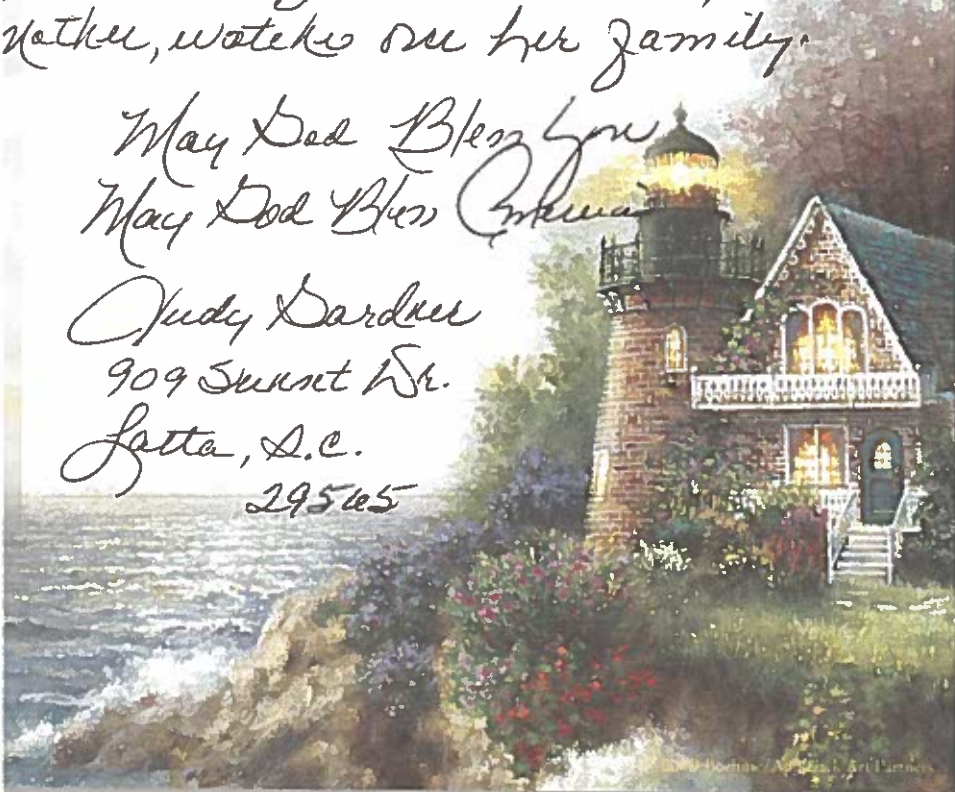 mother, watche over her family.
May God Bless You
May God Bless America
Judy Gardner
909 Sunset Dr.
Latta, S.C.
29565